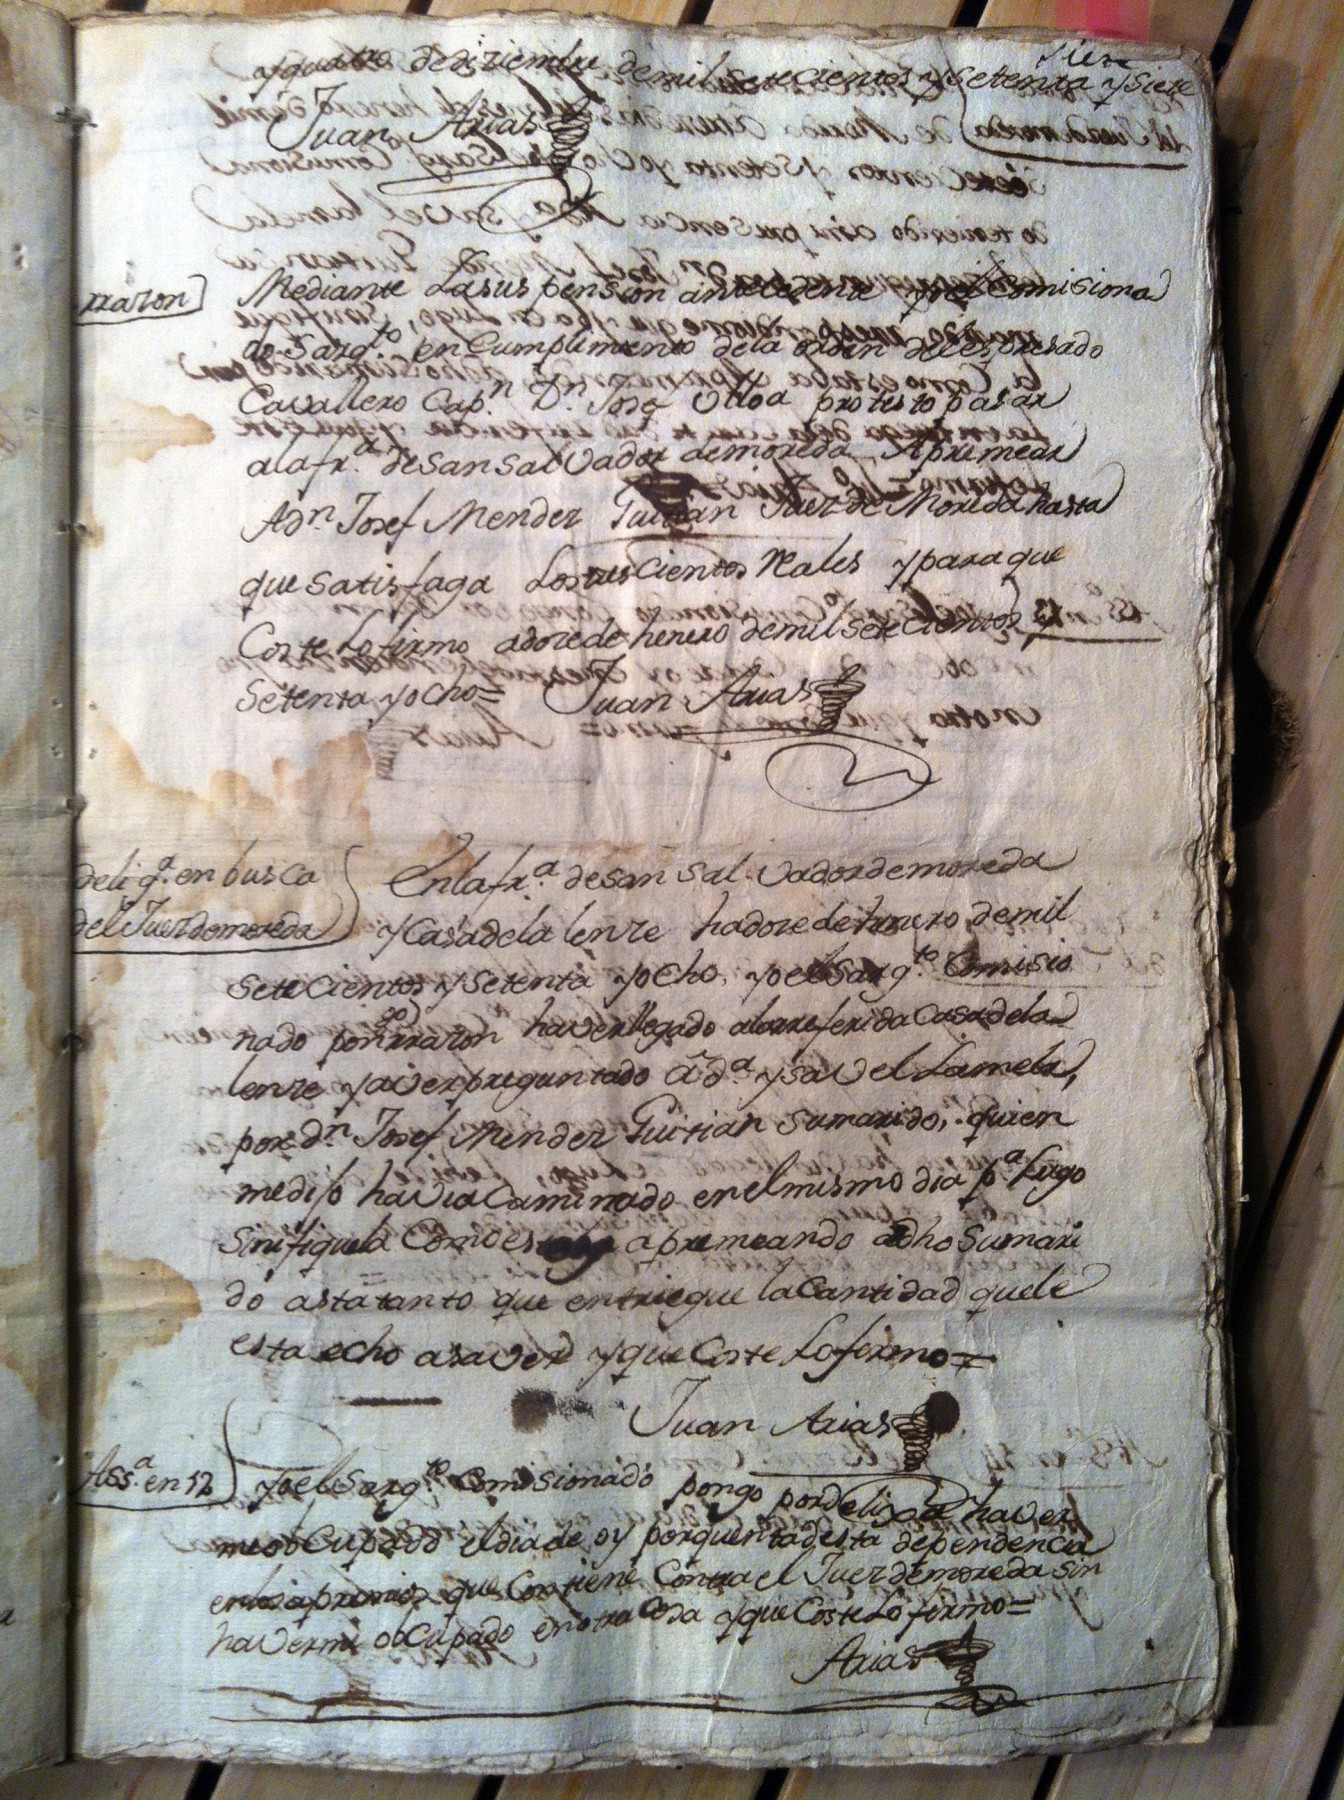 siete
y quatro de diziembre de mil setecientos y setenta y siete
Juan Arias
rrazon
Mediante la suspension antecedente yo el Comisiona
do Sargto en Cumplimiento de la orden del espresado
Cavallero Capn Dn Josef Ulloa protesto pasar
a la fra de san salvador de moreda Apremear
A dn Josef Mendez Guitian Juez de Moreda hasta
que satisfaga los trescientos Reales y para que
Coste lo firmo a doze de henero de mil setecientos
setenta y ocho =
Juan Arias
deliga en busca
del Juez de moreda
En la fra de san salvador de moreda
y Casa de la lenze ha doze de henero de mil
setecientos y setenta y ocho, yo el Sargto Comisio
nado pongo por rrazon haver llegado a la rreferida casa de la
lenze y aver preguntado a da ysavel Lamela,
por dn Josef Mendez Guitian su marido, quien
me dijo havia Caminado en el mismo dia pa Lugo
Sinifiquela Como estaba apremeando a dho su mari
do asta tanto que entriegue la Cantidad que le
esta echo a saver y que Coste lo firmo =
Juan Arias
Assa en 12
yo el Sargto Comisionado pongo por deliga haver
me ocupado el dia de oy por quenta desta dependencia
en los apremios que Contiene Contra el Juez de moreda sin
havermi ocupado en otra Cosa y que Coste lo firmo =
Arias